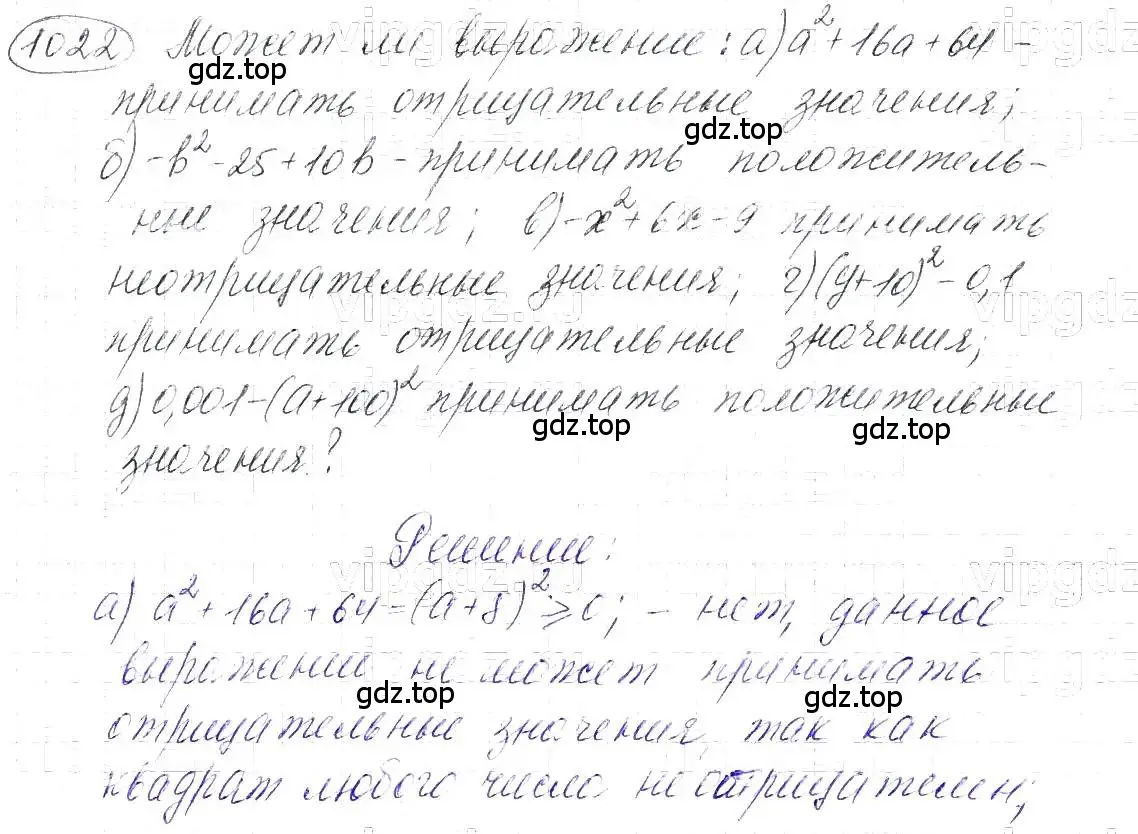 1022 Может ли выражение: а) a² + 16a + 64 -
принимать отрицательные значения;
б) -b² - 25 + 10b - принимать положитель-
ные значения; в) -x² + 6x - 9 принимать
неотрицательные значения; г) (y+10)² - 0,1
принимать отрицательные значения;
д) 0,001 - (a+100)² принимать положительные
значения?
Решение:
а) a² + 16a + 64 = (a+8)² ≥ 0; - нет, данное
выражение не может принимать
отрицательные значения, так как
квадрат любого число неотрицателен;
gdz.top
gdz.top
gdz.top
gdz.top
gdz.top
gdz.top
gdz.top
gdz.top
gdz.top
vipgdz.ru